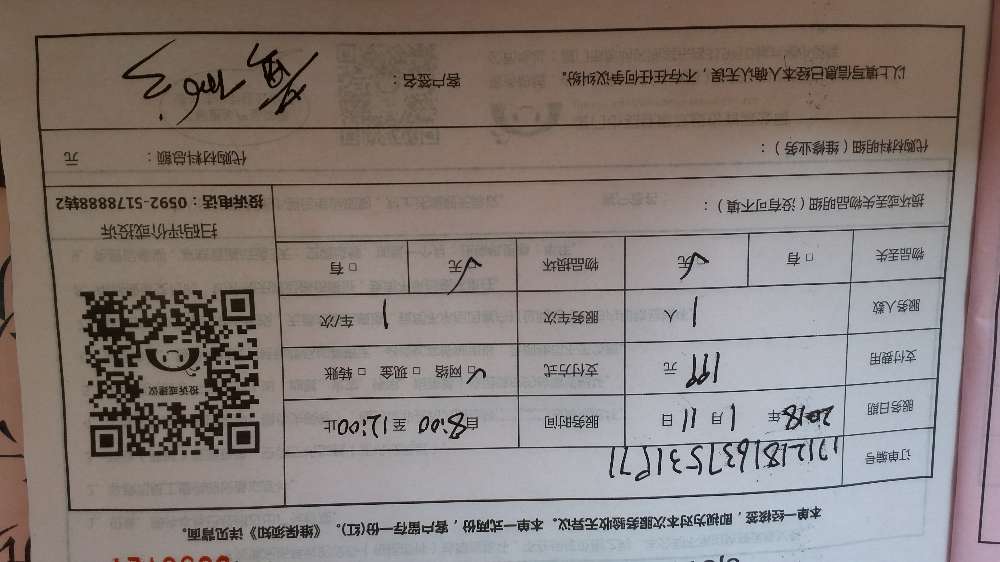 本单一经接签，即视为对本次服务验收无异议。本单一式两份，客户留存一份(红)。《维保须知》详见背面。
订单编号 1712181637531971
服务日期 2018年 1月 11日 服务时间 自8:00至12:00止
支付费用 199 元 支付方式 ☑ 网络 □ 现金 □ 转账
服务人数 1 人 服务车次 1 车/次
物品丢失 □ 有 ☑ 无 物品损坏 ☑ 无 □ 有
投诉或建议
扫码评价或投诉
投诉电话：0592-5178888转2
损坏或丢失物品明细（没有可不填）：
代购材料明细（维修业务）： 代购材料总额： 元
以上填写信息已经本人确认无误，不存在任何争议纠纷。 客户签名：